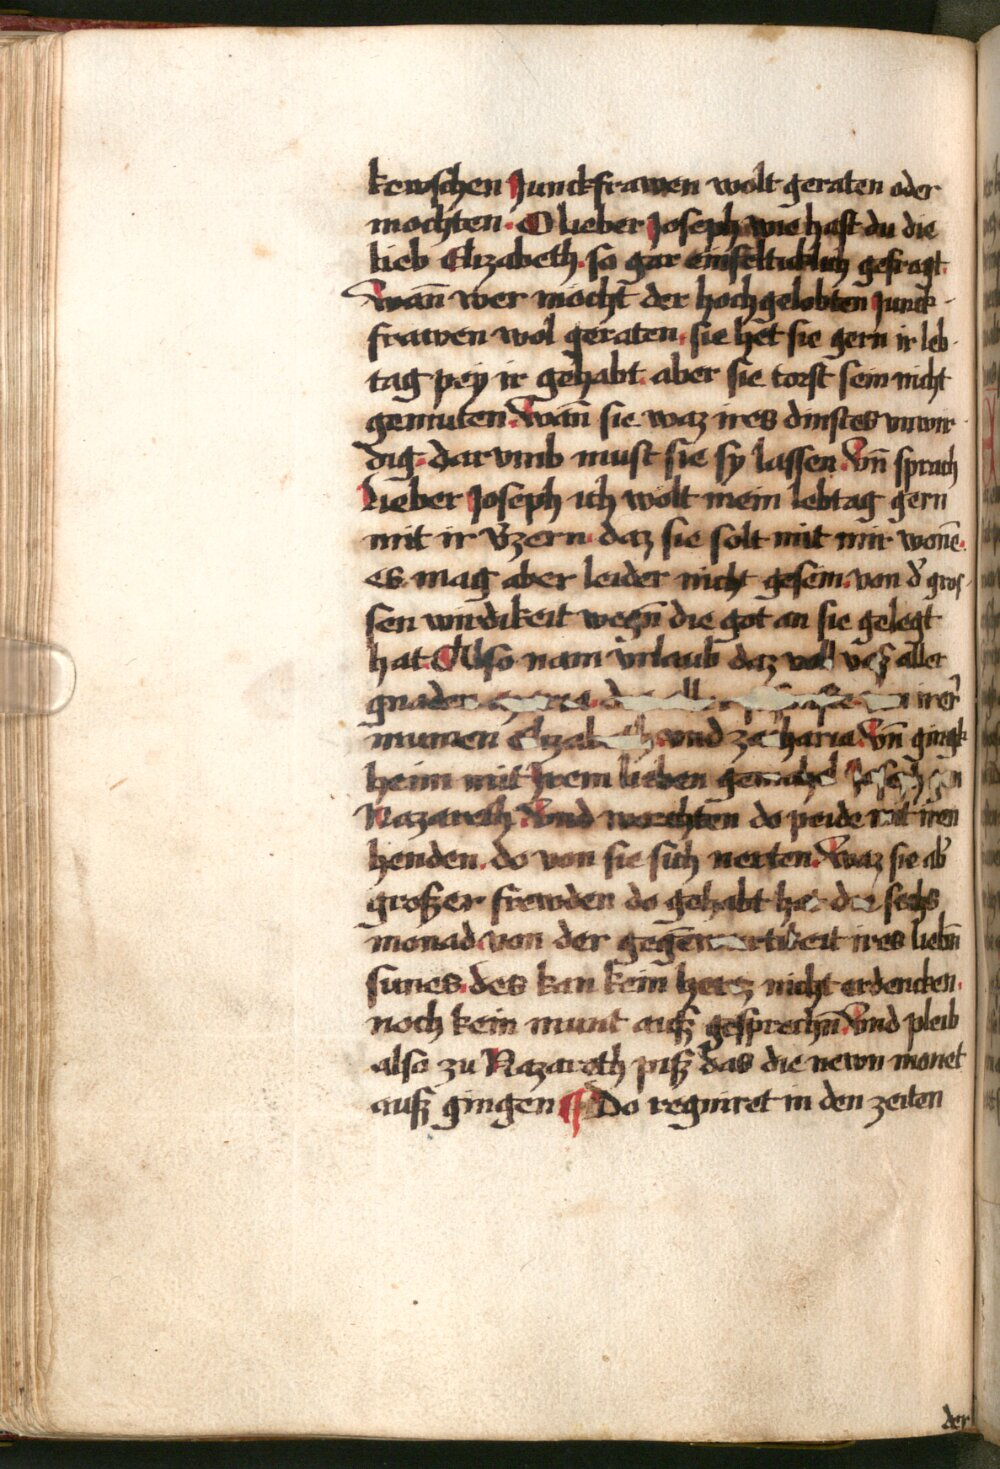 kewschen Junckfrawen wolt geraten oder
mochten. O lieber Joseph wie hast du die
lieb Elizabeth. so gar einfelticklich gefragt.
Wañ wer möcht der hochgelobten Junck-
frawen wol geraten. sie het sie gern ir leb-
tag pey ir gehabt. aber sie torst sein nicht
gemuten. Wañ sie waz ires dinstes vnwir-
dig. dar vmb must sie sy lassen. Vñ sprach
Lieber Joseph ich wolt mein lebtag gern
mit ir daz sie solt mit mir wonē.
es mag aber leider nicht gesein. von d' gros-
sen wirdikeit wegñ die got an sie gelegt
hat. Also nam vrlaub daz voll aller
gnaden irer
mumen Elizabeth. vnd zacharia. Vñ gingk
heim mit Irem lieben gemahel Joseph gen
Nazareth. Vnd worchten do peide mit iren
henden. do von sie sich nerten. Waz sie ab'
großer frewden do gehabt hat die sechs
monad von der gegenwertikeit ires liebñ
sunes. des kan kein hertz nicht erdencken.
noch kein munt auß gesprechñ. Vnd pleib
also zu Nazareth piß das die newn monet
auß gingen ¶ Do regniret in den zeiten
der